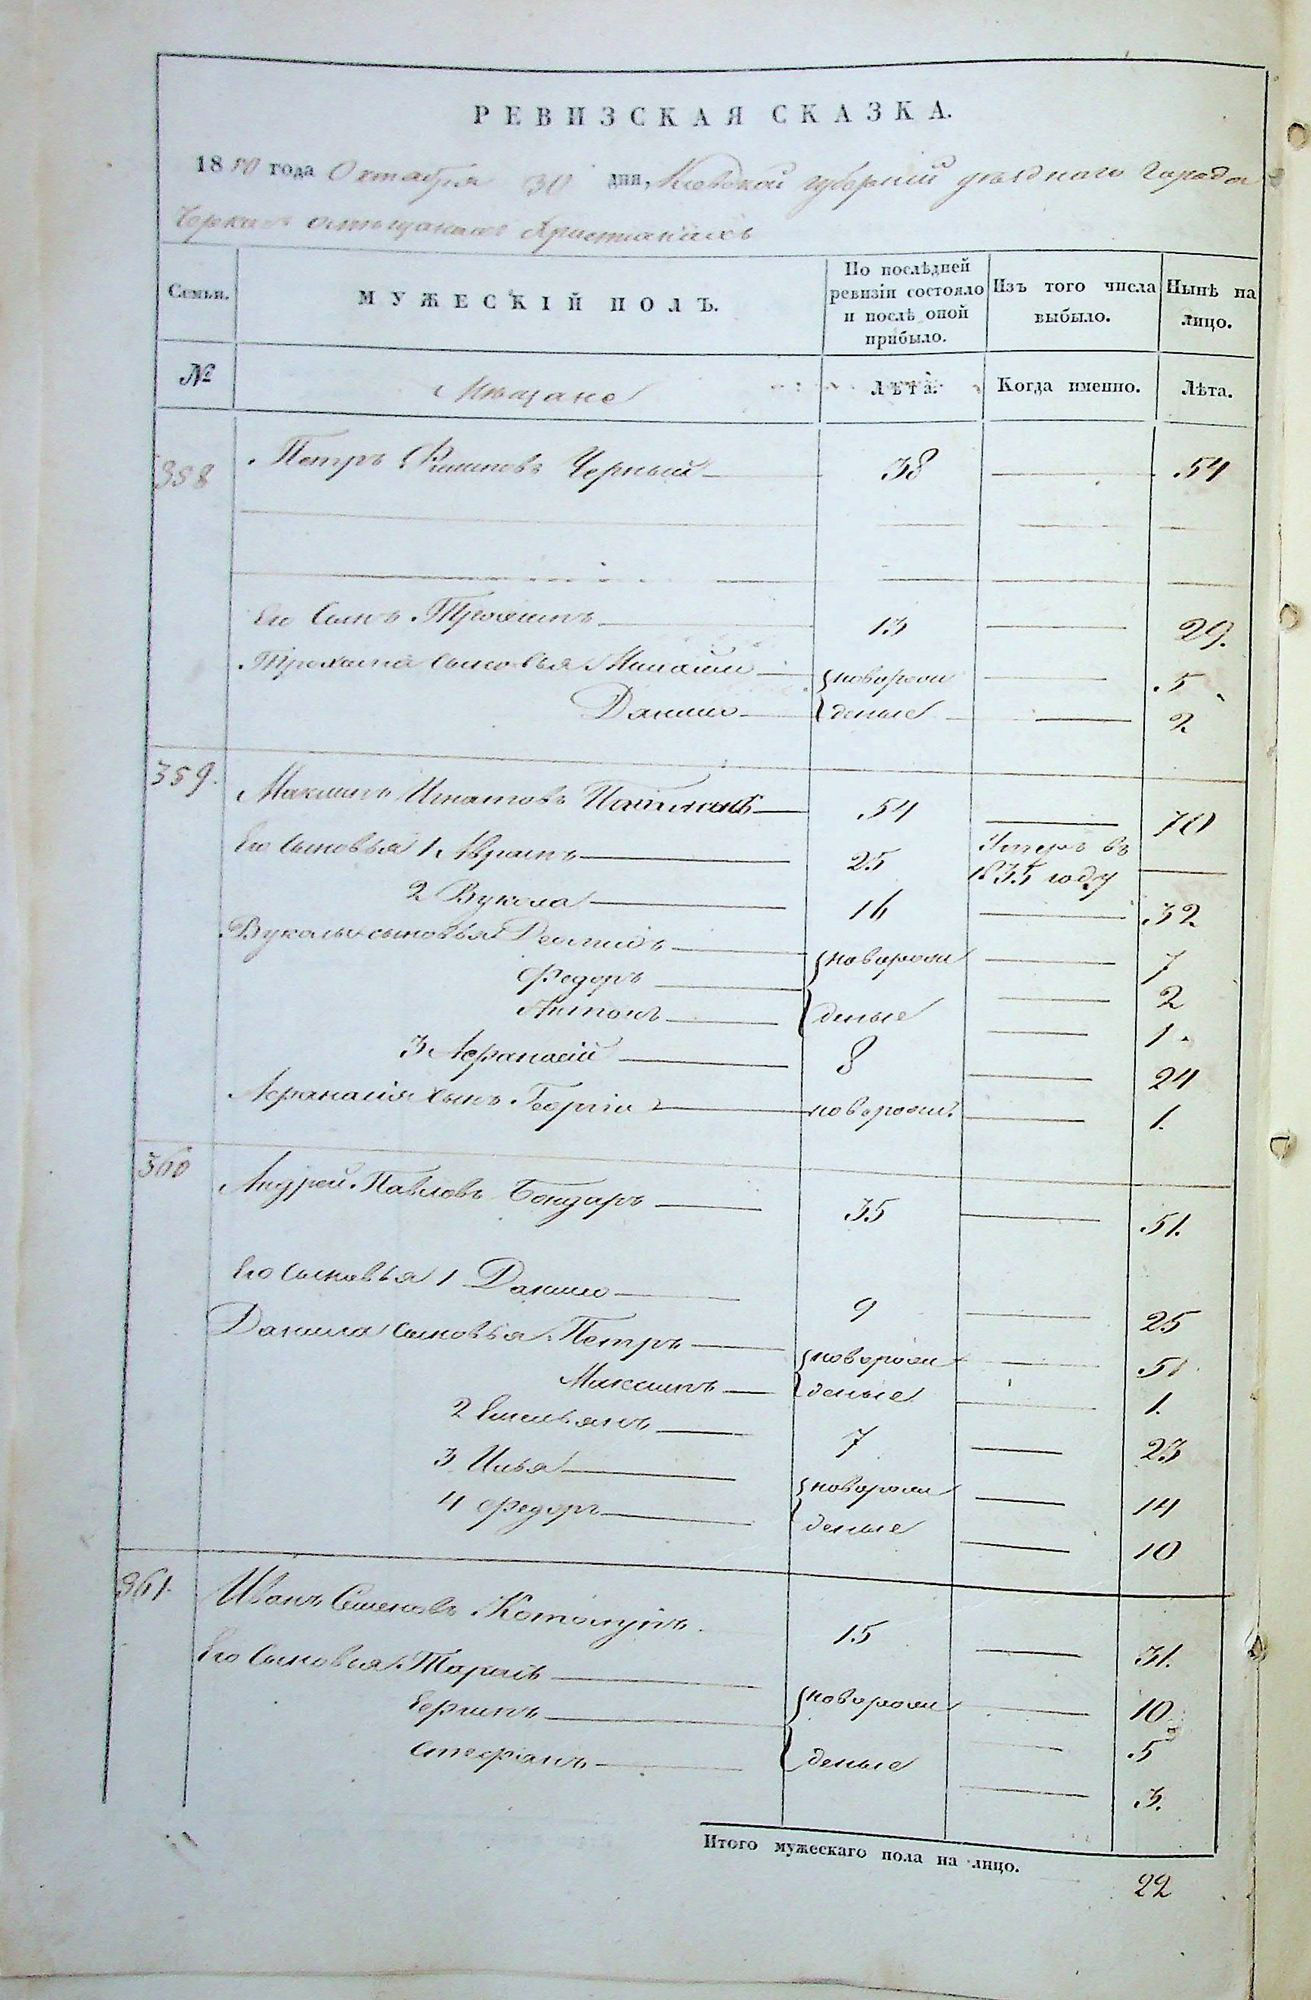 РЕВИЗСКАЯ СКАЗКА.
1850 года Октября 30 дня, Кіевской губерніи уѣзднаго города
Черкасъ омѣщанахъ Христіанахъ
Семьи.
МУЖЕСКІЙ ПОЛЪ.
По послѣдней ревизіи состояло и послѣ оной прибыло.
Изъ того числа выбыло.
Нынѣ на лицо.
№
Мѣщане
Лѣта.
Когда именно.
Лѣта.
358 Петръ Черный 38 54
Его Сынъ Трохимъ 13 29.
Трохима сыновья новорож 5
Данило деные 2
359. Максимъ Игнатовъ 54 70
Его Сыновья 1 Аврамъ 25 Умеръ въ 1835 году
2 Вукола 16 32
Вуколы сыновья новорож 7
Федоръ 2
Антонъ деные 1
3 Афанасій 8 24
Афанасія сынъ Георгій новорож. 1.
360 Андрей Павловъ Бондаръ 35 51.
Его Сыновья 1 Данило 9 25
Данила сыновья Петръ новорож 5
Максимъ деные 1.
2 Емельянъ 7 23
3 Илья новорож 14
4 Федоръ деные 10
361. Иванъ Семеновъ 15 31.
Его Сыновья Тарасъ новорож 10
5
Стефанъ деные 3.
Итого мужескаго пола на лицо. 22